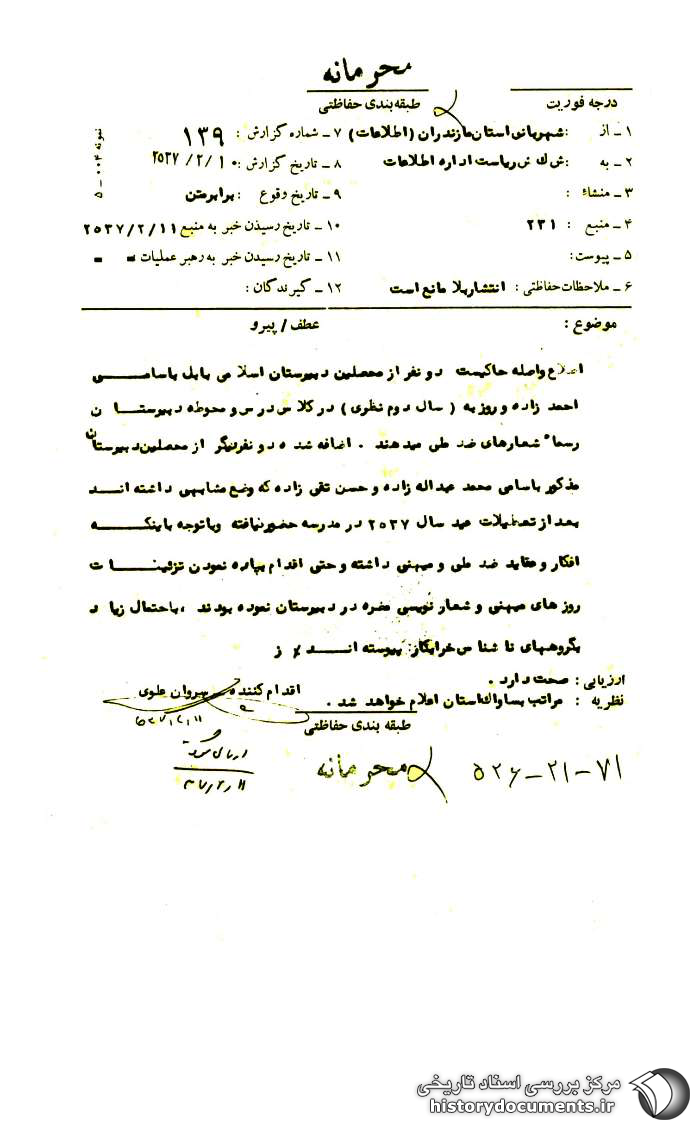 محرمانه
درجه فوریت
طبقه‌بندی حفاظتی
۱ ـ از : شهربانی استان مازندران (اطلاعات) ۷ ـ شماره گزارش : ۱۳۹
۲ ـ به : ش ک ش ریاست اداره اطلاعات ۸ ـ تاریخ گزارش : ۲۵۳۷/۲/۱۰
۳ ـ منشاء : ۹ ـ تاریخ وقوع : برابر متن
۴ ـ منبع : ۲۳۱ ۱۰ ـ تاریخ رسیدن خبر به منبع ۲۵۳۷/۲/۱۱
۵ ـ پیوست : ۱۱ ـ تاریخ رسیدن خبر به رهبر عملیات ـ ـ
۶ ـ ملاحظات حفاظتی : انتشار بلا مانع است ۱۲ ـ گیرندگان :
نمونه ۰۰۴ ـ ۵
موضوع : عطف / پیرو
اطلاع واصله حاکیست دو نفر از محصلین دبیرستان اسلامی بابل باسامی
احمد زاده و روز به ( سال دوم نظری ) در کلاس درس و محوطه دبیرستان
رسما" شعارهای ضد ملی میدهند . اضافه شده دو نفر دیگر از محصلین دبیرستان
مذکور باسامی محمد عبداله زاده و حسن تقی زاده که وضع مشابهی داشته اند
بعد از تعطیلات عید سال ۲۵۳۷ در مدرسه حضور نیافته و با توجه باینکه
افکار و عقاید ضد ملی و میهنی داشته و حتی اقدام بپاره نمودن تزئینات
روز های میهنی و شعار نویسی مضره در دبیرستان نموده بودند ، باحتمال زیاد
بگروههای ناشناس خرابکار پیوسته اند ٪ ز
ارزیابی : صحت دارد .
نظریه : مراتب بساواک استان اعلام خواهد شد .
اقدام کننده سروان علوی
طبقه بندی حفاظتی
محرمانه
۵۲۶-۲۱-۷۱
۳۷/۲/۱۱
مرکز بررسی اسناد تاریخی
historydocuments.ir